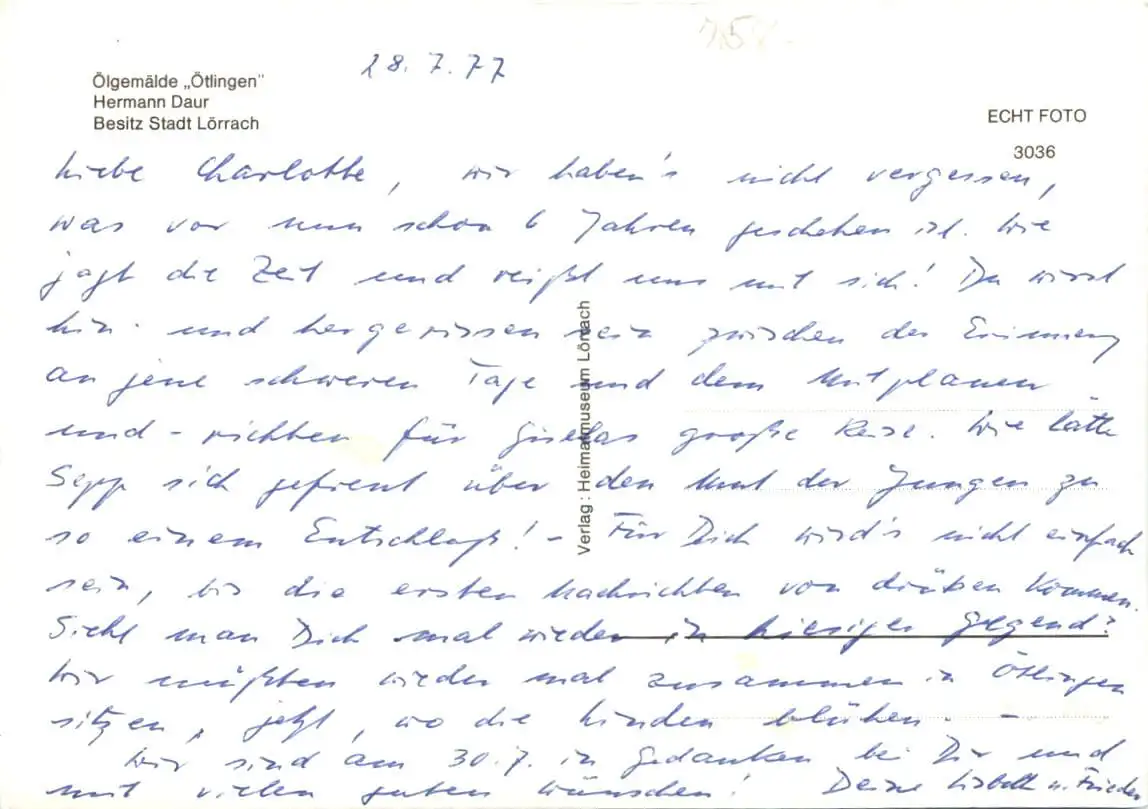 28.7.77
Ölgemälde „Ötlingen"
Hermann Daur
Besitz Stadt Lörrach
ECHT FOTO
3036
Liebe Charlotte, wir haben's nicht vergessen,
was vor nun schon 6 Jahren geschehen ist. Wie
jagt die Zeit und reißt uns mit sich! Du wirst
hin- und hergerissen sein zwischen der Erinnerung
an jene schweren Tage und dem Mitplanen
und -richten für Giselas große Reise. Wie hätte
Sepp sich gefreut über den Mut der Jungen zu
so einem Entschluß! – Für Dich wird's nicht einfach
sein, bis die ersten Nachrichten von drüben kommen.
Sieht man Dich mal wieder in hiesiger Gegend?
Wir müßten wieder mal zusammen in Ötlingen
sitzen, jetzt, wo die Linden blühen. –
Wir sind am 30.7. in Gedanken bei Dir und
mit vielen guten Wünschen! Deine Lisbeth u. Frieder
Verlag: Heimatmuseum Lörrach